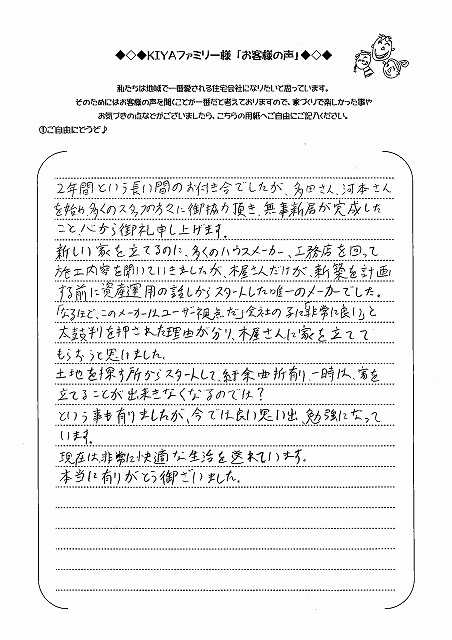 ◆◇◆KIYAファミリー様「お客様の声」◆◇◆
私たちは地域で一番愛される住宅会社になりたいと思っています。
そのためにはお客様の声を聞くことが一番だと考えておりますので、家づくりで楽しかった事や
お気づきの点などがございましたら、こちらの用紙へご自由にご記入ください。
①ご自由にどうぞ♪
2年間という長い間のお付き合でしたが、多田さん、河本さん
を始め多くのスタッフの方々に御協力頂き、無事新居が完成した
こと心から御礼申し上げます。
新しい家を立てるのに、多くのハウスメーカー、工務店を回って
施工内容を聞いていきましたが、木屋さんだけが、新築を計画
する前に資産運用の話しからスタートした唯一のメーカーでした。
「なるほど、このメーカーはユーザー視点だ」会社の子に「非常に良い」と
太鼓判を押された理由が分り、木屋さんに家を立てて
もらおうと思いました。
土地を探す所からスタートして、紆余曲折有り、一時は、家を
立てることが出来なくなるのでは?
という事も有りましたが、今では良い思い出、勉強になって
います。
現在は非常に快適な生活を送れています。
本当に有りがとう御ざいました。